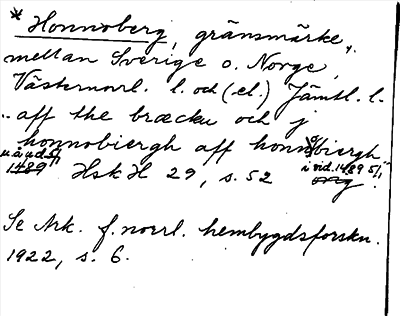 * Honnoberg, gränsmärke,
mellan Sverige o. Norge,
Västernorrl. l. och (el.) Jämtl. l.
"aff the bræcku och j
honnobiergh aff honnobiergh"
1489 Hsk H 29, s. 52 i vid. 1489 5/1
Se Ark. f. norrl. hembygdsforskn.
1922, s. 6.